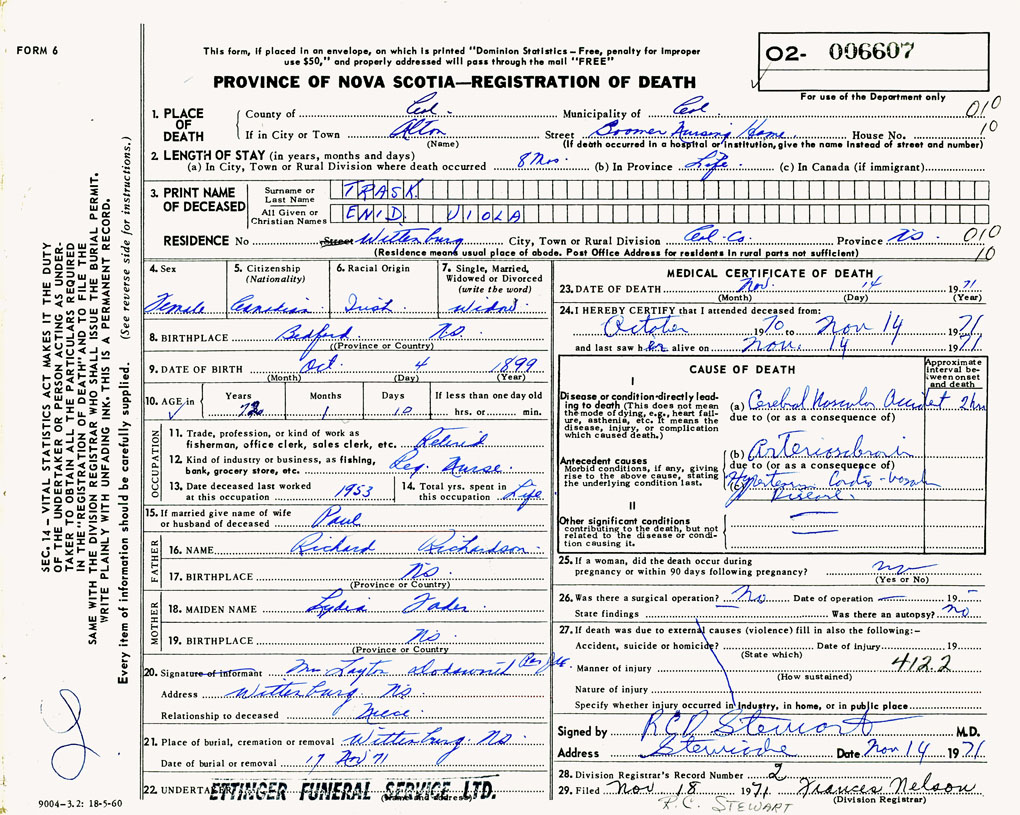 FORM 6
This form, if placed in an envelope, on which is printed "Dominion Statistics – Free, penalty for improper
use $50," and properly addressed will pass through the mail "FREE"
PROVINCE OF NOVA SCOTIA—REGISTRATION OF DEATH
O2- 006607
For use of the Department only
1. PLACE OF DEATH
County of Col. Municipality of Col. 010
If in City or Town Alton Street Boomer Nursing Home. House No. 10
(Name) (If death occurred in a hospital or institution, give the name instead of street and number)
2. LENGTH OF STAY (in years, months and days)
(a) In City, Town or Rural Division where death occurred 8 Mos. (b) In Province Life (c) In Canada (if immigrant)
3. PRINT NAME OF DECEASED
Surname or Last Name TRASK
All Given or Christian Names ENID VIOLA
RESIDENCE No Street Wittenburg City, Town or Rural Division Col. Co. Province N.S. 010
(Residence means usual place of abode. Post Office Address for residents in rural parts not sufficient) 10
4. Sex
Female
5. Citizenship
(Nationality)
Canadian
6. Racial Origin
Irish
7. Single, Married, Widowed or Divorced
(write the word)
Widow.
8. BIRTHPLACE Bedford N.S.
(Province or Country)
9. DATE OF BIRTH Oct. 4 1899
(Month) (Day) (Year)
10. AGE in Years Months Days If less than one day old
72 1 10 hrs. or min.
OCCUPATION
11. Trade, profession, or kind of work as
fisherman, office clerk, sales clerk, etc. Retired
12. Kind of industry or business, as fishing,
bank, grocery store, etc. Reg. Nurse.
13. Date deceased last worked
at this occupation 1953
14. Total yrs. spent in
this occupation Life
15. If married give name of wife
or husband of deceased Paul
FATHER
16. NAME Richard Richardson.
17. BIRTHPLACE N.S.
(Province or Country)
MOTHER
18. MAIDEN NAME Lydia Fader.
19. BIRTHPLACE N.S.
(Province or Country)
20. Signature of informant Mrs Layton
Address Wittenburg NS
Relationship to deceased Niece.
21. Place of burial, cremation or removal Wittenburg. N.S.
Date of burial or removal 17 Nov 71
22. UNDERTAKER ETTINGER FUNERAL SERVICE LTD.
(name and address)
MEDICAL CERTIFICATE OF DEATH
23. DATE OF DEATH Nov. 14 1971
(Month) (Day) (Year)
24. I HEREBY CERTIFY that I attended deceased from:
October 1970 to Nov 14 1971
and last saw her alive on Nov. 14 1971
CAUSE OF DEATH
Approximate interval between onset and death
I
Disease or condition directly leading to death (This does not mean the mode of dying, e.g., heart failure, asthenia, etc. It means the disease, injury, or complication which caused death.)
(a) Cerebral Vascular Accident 2 hrs
due to (or as a consequence of)
Antecedent causes
Morbid conditions, if any, giving rise to the above cause, stating the underlying condition last.
(b) Arteriosclerosis
due to (or as a consequence of)
(c) Disease.
II
Other significant conditions
contributing to the death, but not related to the disease or condition causing it.
25. If a woman, did the death occur during
pregnancy or within 90 days following pregnancy? no
(Yes or No)
26. Was there a surgical operation? No Date of operation — 19 —
State findings Was there an autopsy? no
27. If death was due to external causes (violence) fill in also the following:–
Accident, suicide or homicide? Date of injury 19
(State which)
Manner of injury 4122
(How sustained)
Nature of injury
Specify whether injury occurred in industry, in home, or in public place
Signed by R.C. Stewart M.D.
Address Stewiacke Date Nov 14 1971
28. Division Registrar's Record Number 2
29. Filed Nov 18 1971 Frances Nelson
R.C. STEWART (Division Registrar)
SEC. 14 – VITAL STATISTICS ACT MAKES IT THE DUTY
OF THE UNDERTAKER OR PERSON ACTING AS UNDER-
TAKER TO OBTAIN ALL THE PARTICULARS REQUIRED
IN THE "REGISTRATION OF DEATH" AND TO FILE THE
SAME WITH THE DIVISION REGISTRAR WHO SHALL ISSUE THE BURIAL PERMIT.
WRITE PLAINLY WITH UNFADING INK. THIS IS A PERMANENT RECORD.
Every item of information should be carefully supplied. (See reverse side for instructions.)
9004–3.2: 18-5-60